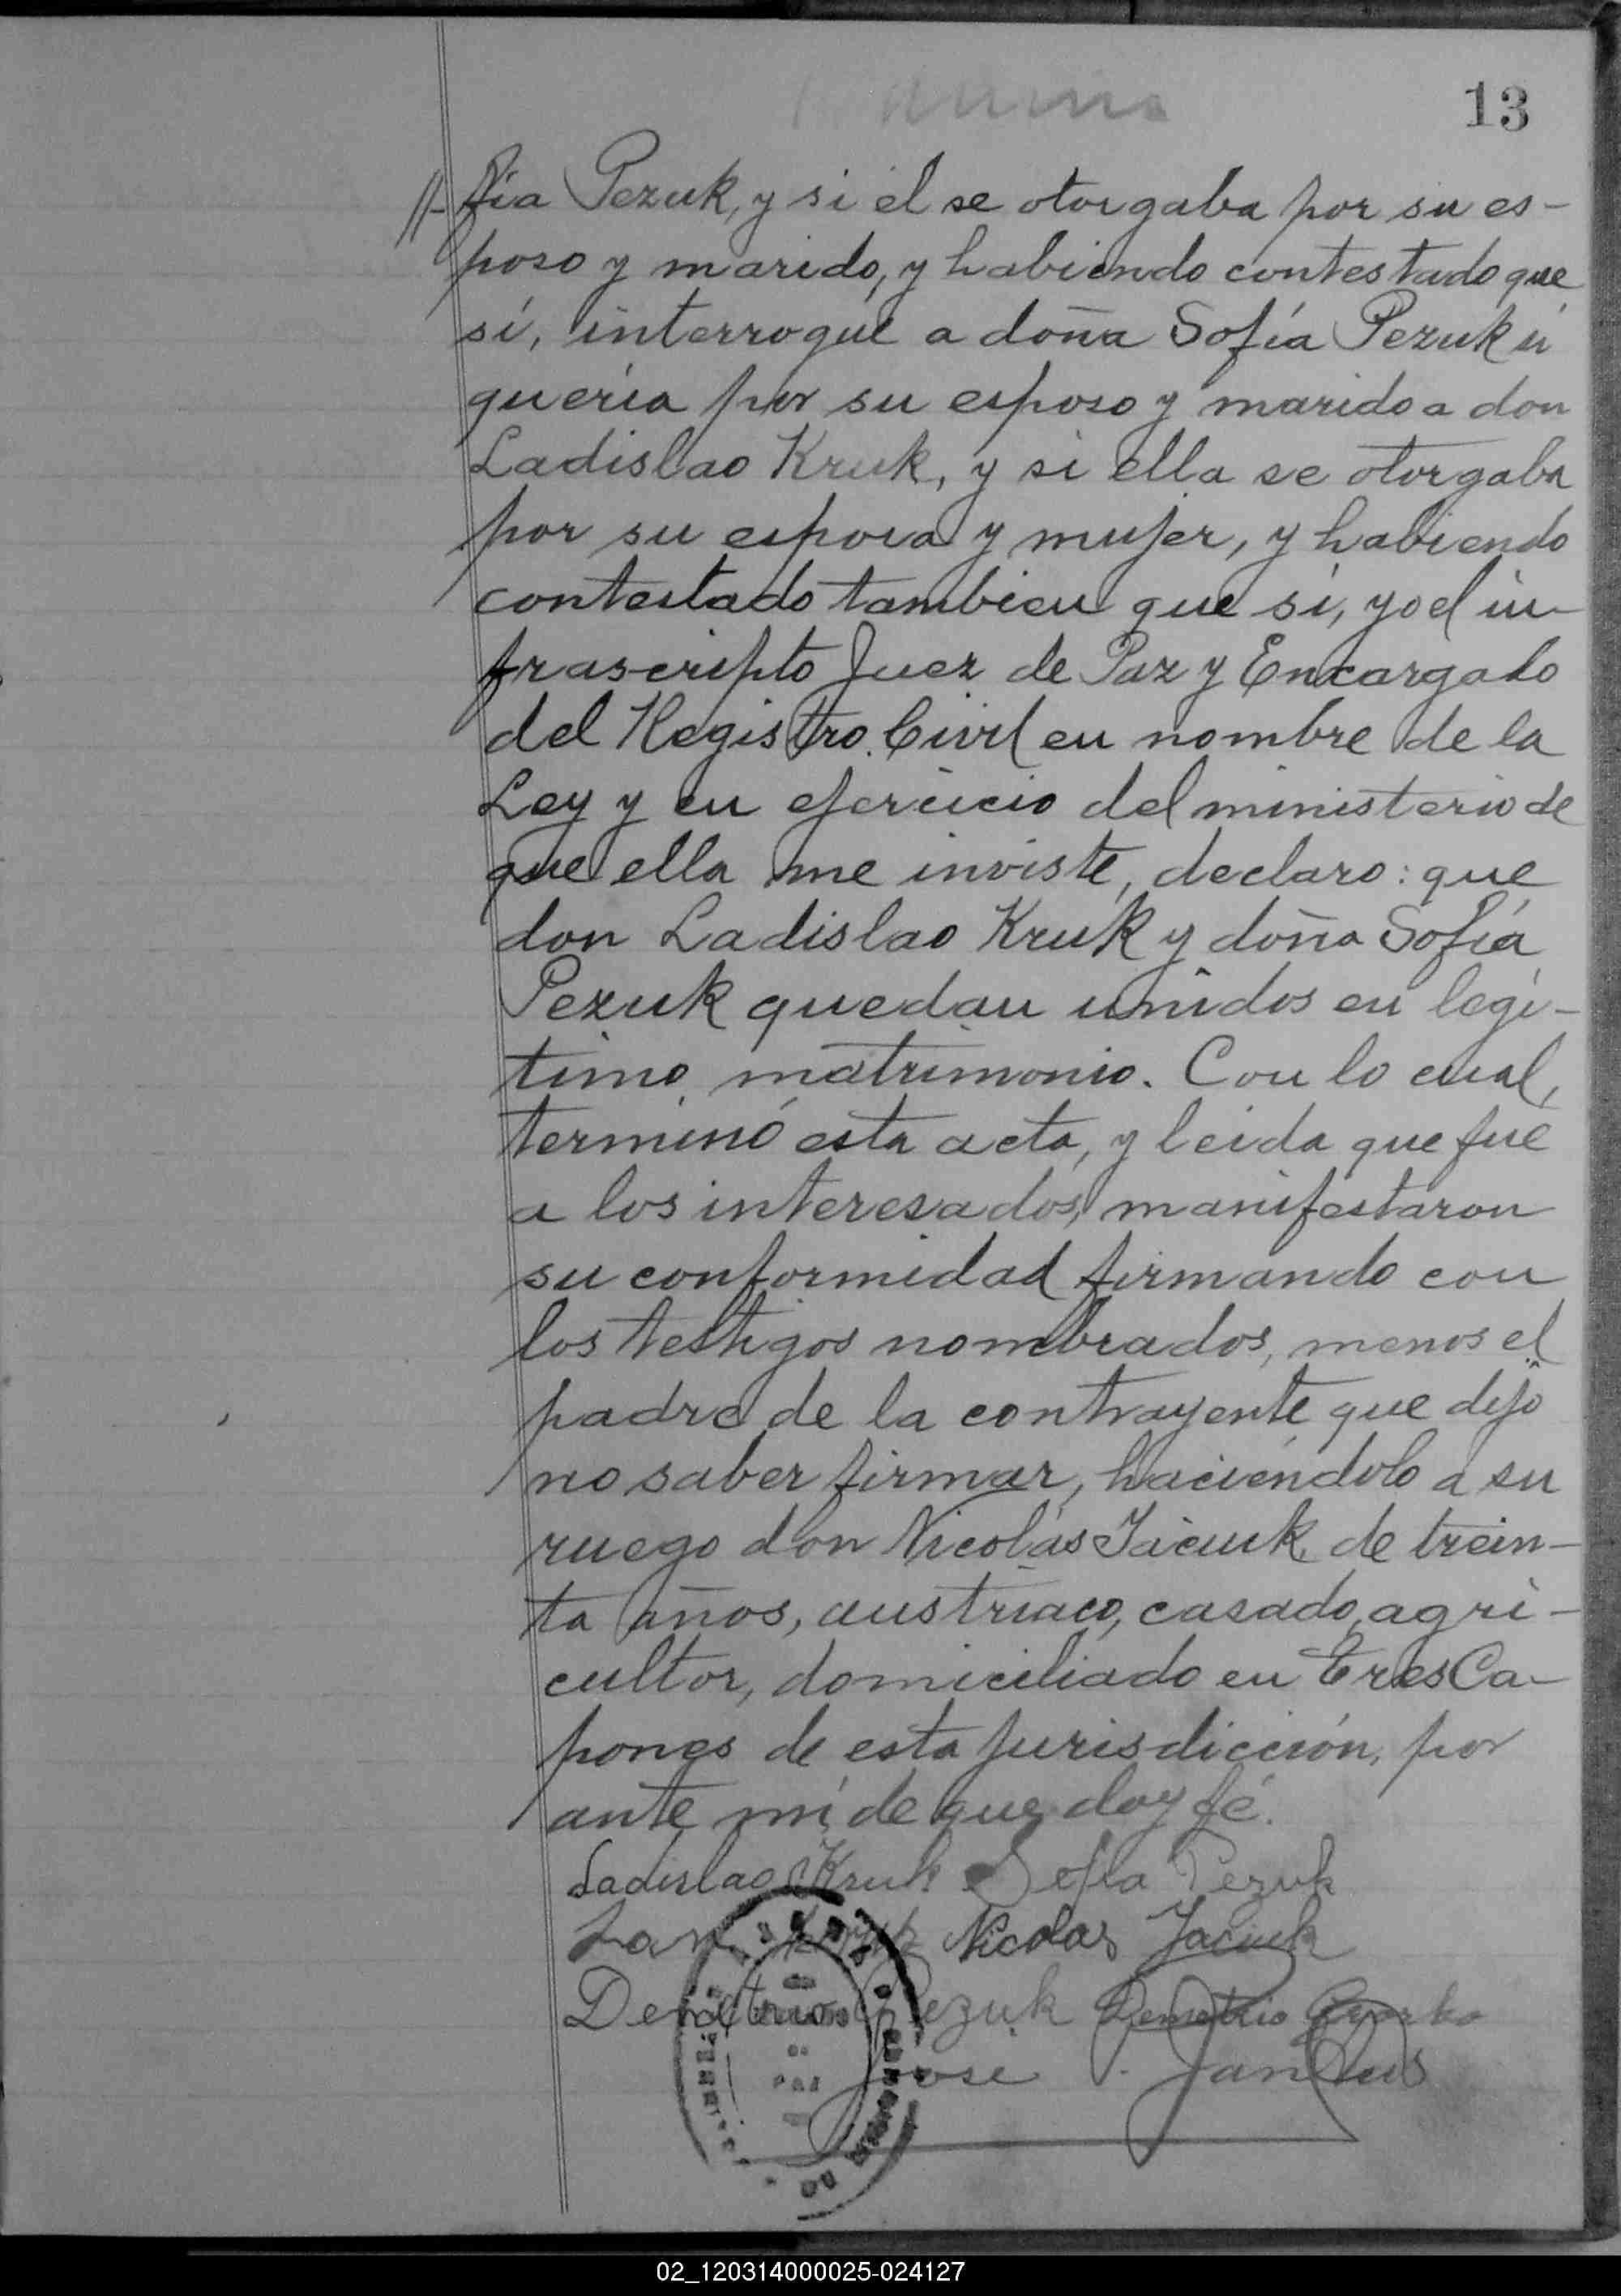 13
//- fía Pezuk, y si él se otorgaba por su es-
poso y marido, y habiendo contestado que
sí, interrogué a doña Sofía Pezuk si
quería por su esposo y marido a don
Ladislao Kruk, y si ella se otorgaba
por su esposa y mujer, y habiendo
contestado tambien que sí, yo el in-
frascripto Juez de Paz y Encargado
del Registro Civil en nombre de la
Ley y en ejercicio del ministerio de
que ella me inviste, declaro: que
don Ladislao Kruk y doña Sofía
Pezuk quedan unidos en legí-
timo matrimonio. Con lo cual,
terminó esta acta, y leida que fué
a los interesados, manifestaron
su conformidad firmando con
los testigos nombrados, menos el
padre de la contrayente que dijo
no saber firmar, haciéndolo a su
ruego don Nicolás Jaciuk de trein-
ta años, austríaco, casado, agri-
cultor, domiciliado en Tres Ca-
pones de esta jurisdicción, por
ante mí de que doy fé.
Ladislao Kruk Sofia Pezuk
Jan Nicolas Jaciuk
Demetrio Pezuk Demetrio
José
02_120314000025-024127